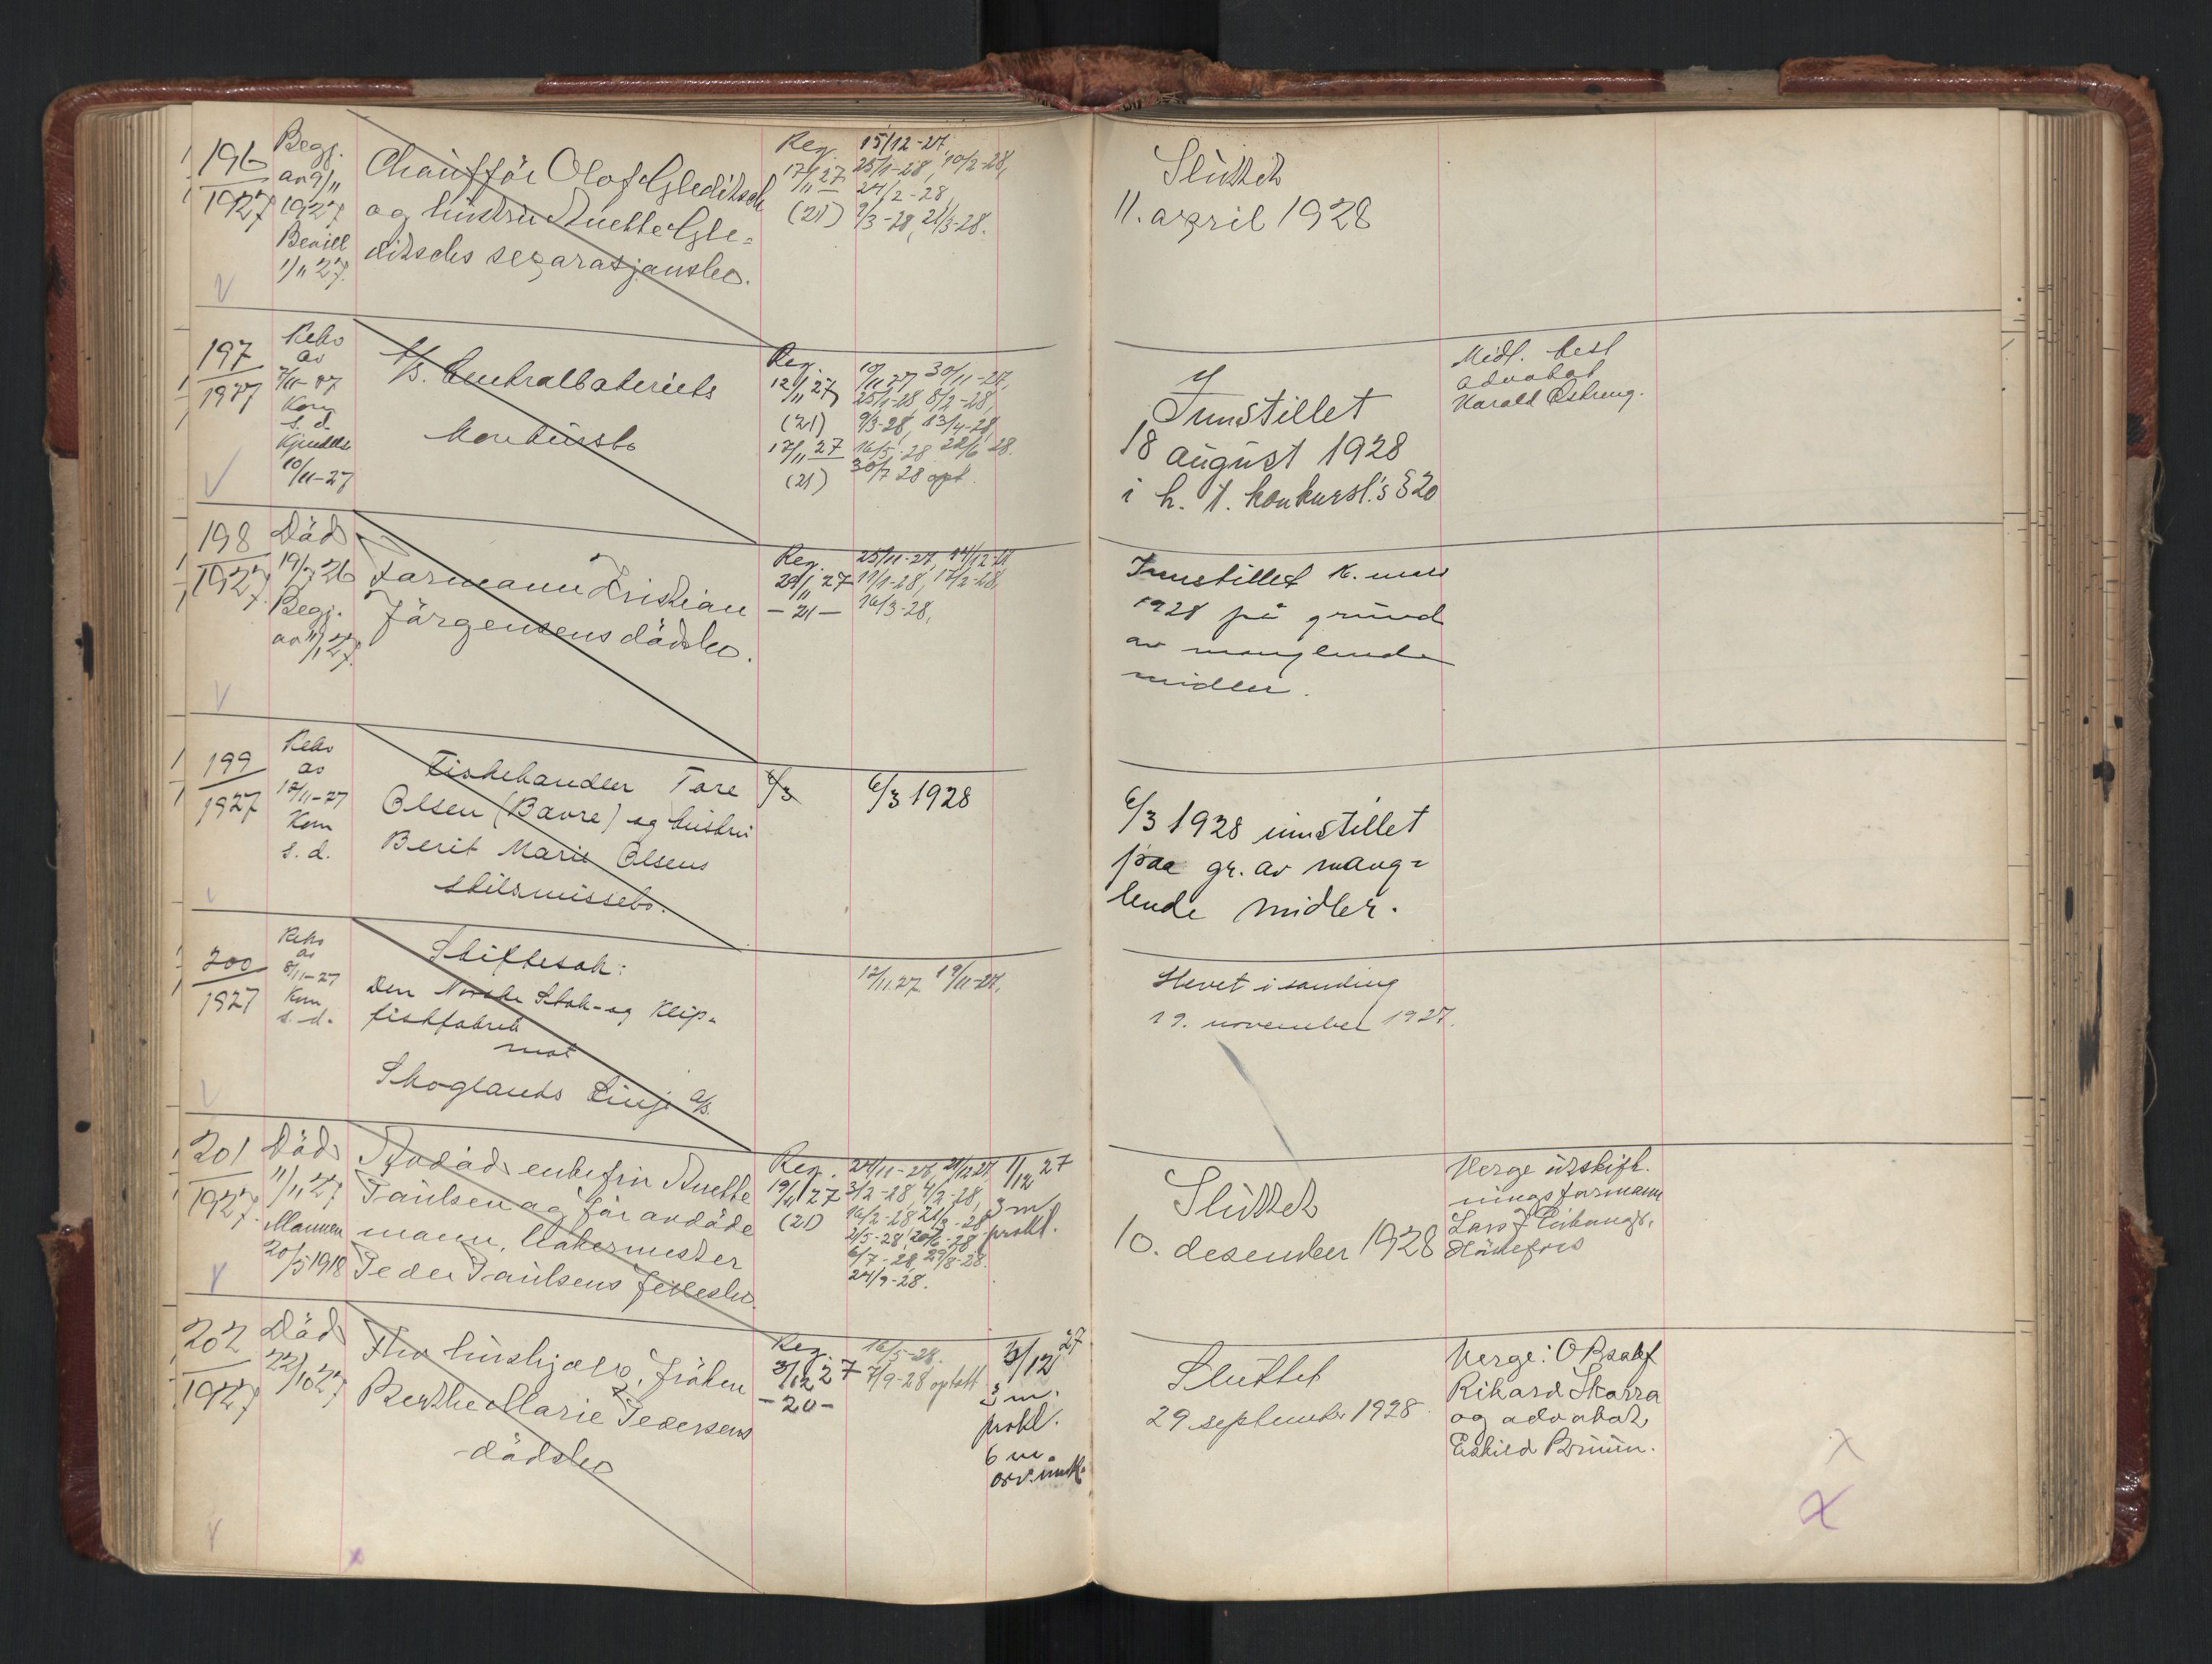 196
1927
Begj.
av 9/11
1927
Bevill
1/11 27.
Chauffør Olof Gleditsch
og hustru Anette Gle=
ditschs separasjonsbo.
Reg.
17/11 27
(21)
15/12-27
25/1-28, 10/2-28,
24/2-28,
9/3-28, 21/3-28.
Sluttet
11. april 1928
197
1927
Rekv
av
9/11-27
Kom
s. d.
Kjendelse
10/11-27
A/S. Centralbateriets
konkursbo
Reg.
12/11 27
(21)
17/11 27
(21)
19/11 27 30/11-27,
25/1-28 8/2-28,
9/3-28, 13/4-28,
16/5-28 22/6 28.
30/7 28 opt.
Innstillet
18 august 1928
i h. t. konkursl.'s § 20
Midl. best
advokat
Harald Østreng.
198
1927
Död
19/7 26
Begj.
av 11/11 27.
Formann Kristian
Jörgensens dödsbo.
Reg.
29/11 27
- 21 -
25/11-27, 14/12-27
11/1-28, 17/2-28,
16/3-28,
Innstillet 16. mars
1928 på grund
av manglende
midler.
199
1927
Rekv
av
12/11-27
Kom
s. d.
Fiskehandler Tore
Olsen (Bavre) og hustru
Berit Marie Olsens
skilsmissebo.
6/3
6/3 1928
6/3 1928 innstillet
paa gr. av mang=
lende midler.
200
1927
Rekv
av
8/11-27
Kom
s. d.
Skiftesak:
Den Norske Stok- og Klip-
fiskfabrik
mot
Skoglands Linje A/S.
12/11 27 19/11-27.
Hevet i samling
19. november 1927.
201
1927.
Död
11/11 27
Mannen
20/5 1918
Avdöd enkefru Anette
Paulsen og för avdöde
mann, Makermester
Peder Paulsens fellesbo.
Reg.
19/11 27
(21)
24/11-27, 21/12 27,
3/2-28, 4/2-28,
16/2-28 21/3-28
2/5-28, 20/6-28
6/7-28, 29/8-28.
24/9-28.
1/12 27
3 m
prokl.
Sluttet
10. desember 1928
Verge utskift.
ningsformann
202
1927
Död
22/10 27
Fhv hushjelp, fröken
Berthe Marie Pedersens
dödsbo
Reg.
3/12 27
- 20 -
16/5-28.
7/9-28 optatt
3/12 27
3 m.
prokl.
6 m.
arv. innk.
Sluttet
29. september 1928
Verge: O R sakf
Rikard Skarra
og advokat
Eskild Bruun.